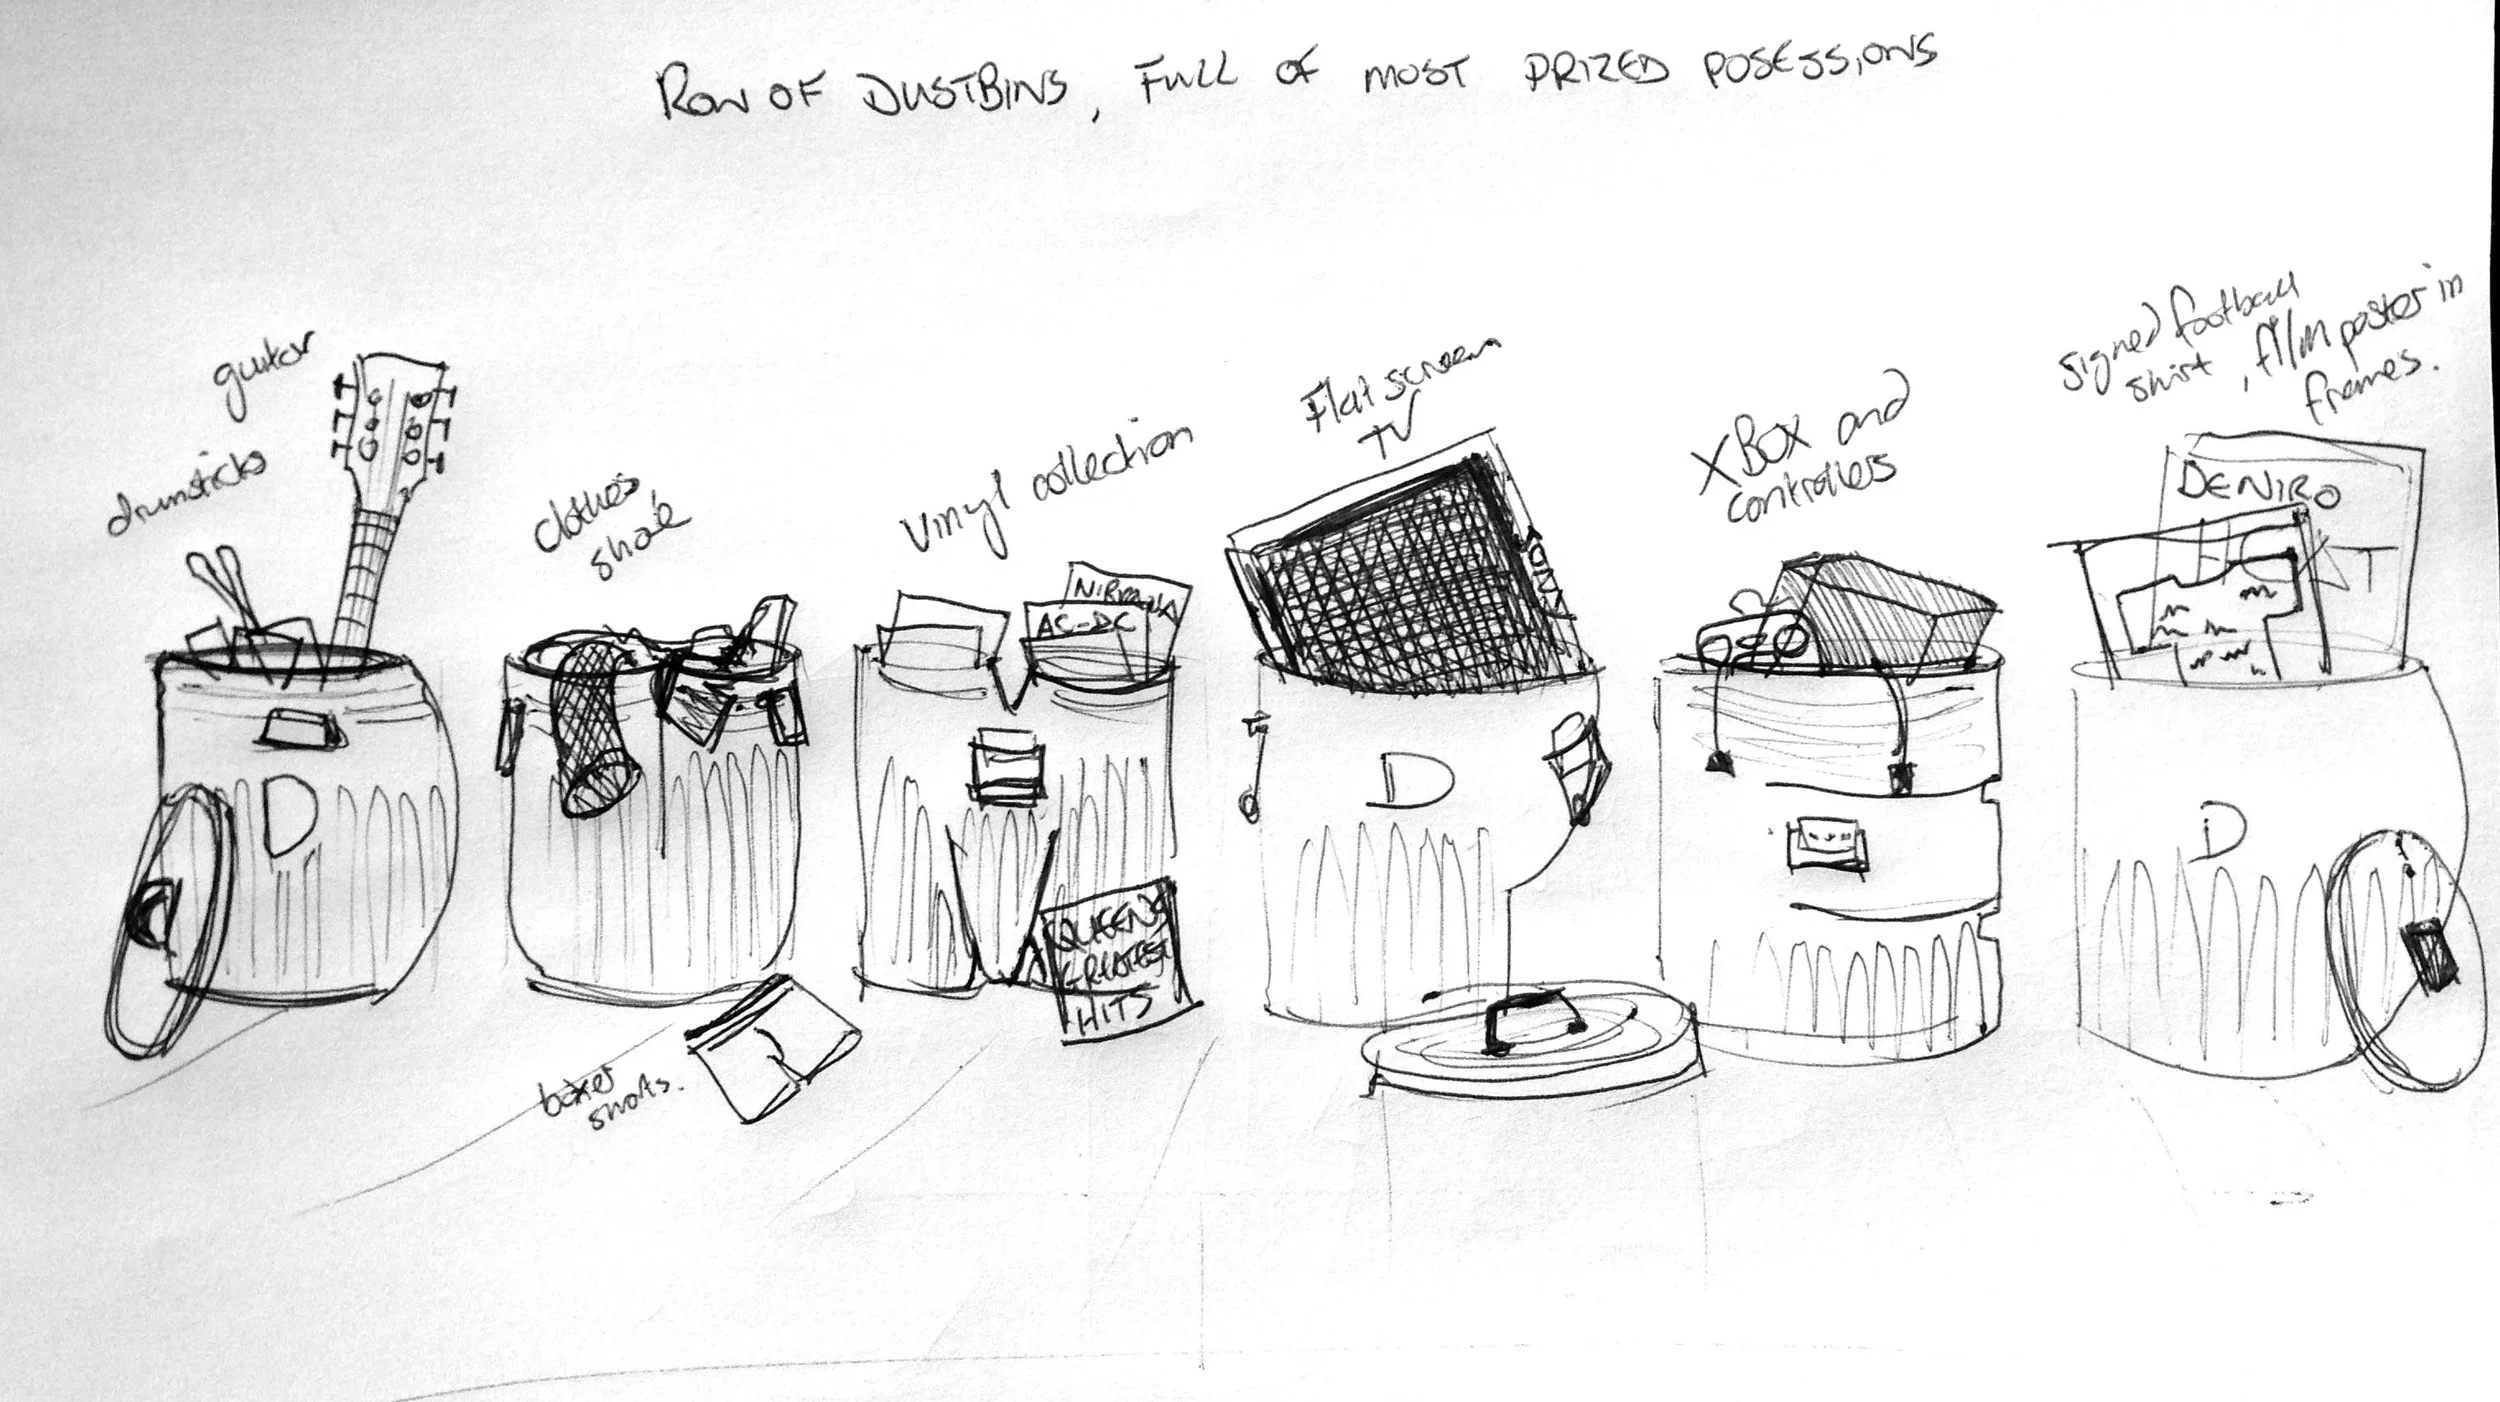 ROW OF DUSTBINS, FULL OF MOST PRIZED POSESSIONS
guitar
drumsticks
clothes,
shoe
vinyl collection
NIRVANA
AC-DC
QUEENS
GREATEST
HITS
Flat screen
TV
SONY
XBOX and
controllers
signed football
shirt, film poster in
frames.
DENIRO
D
D
D
boxer
shorts.